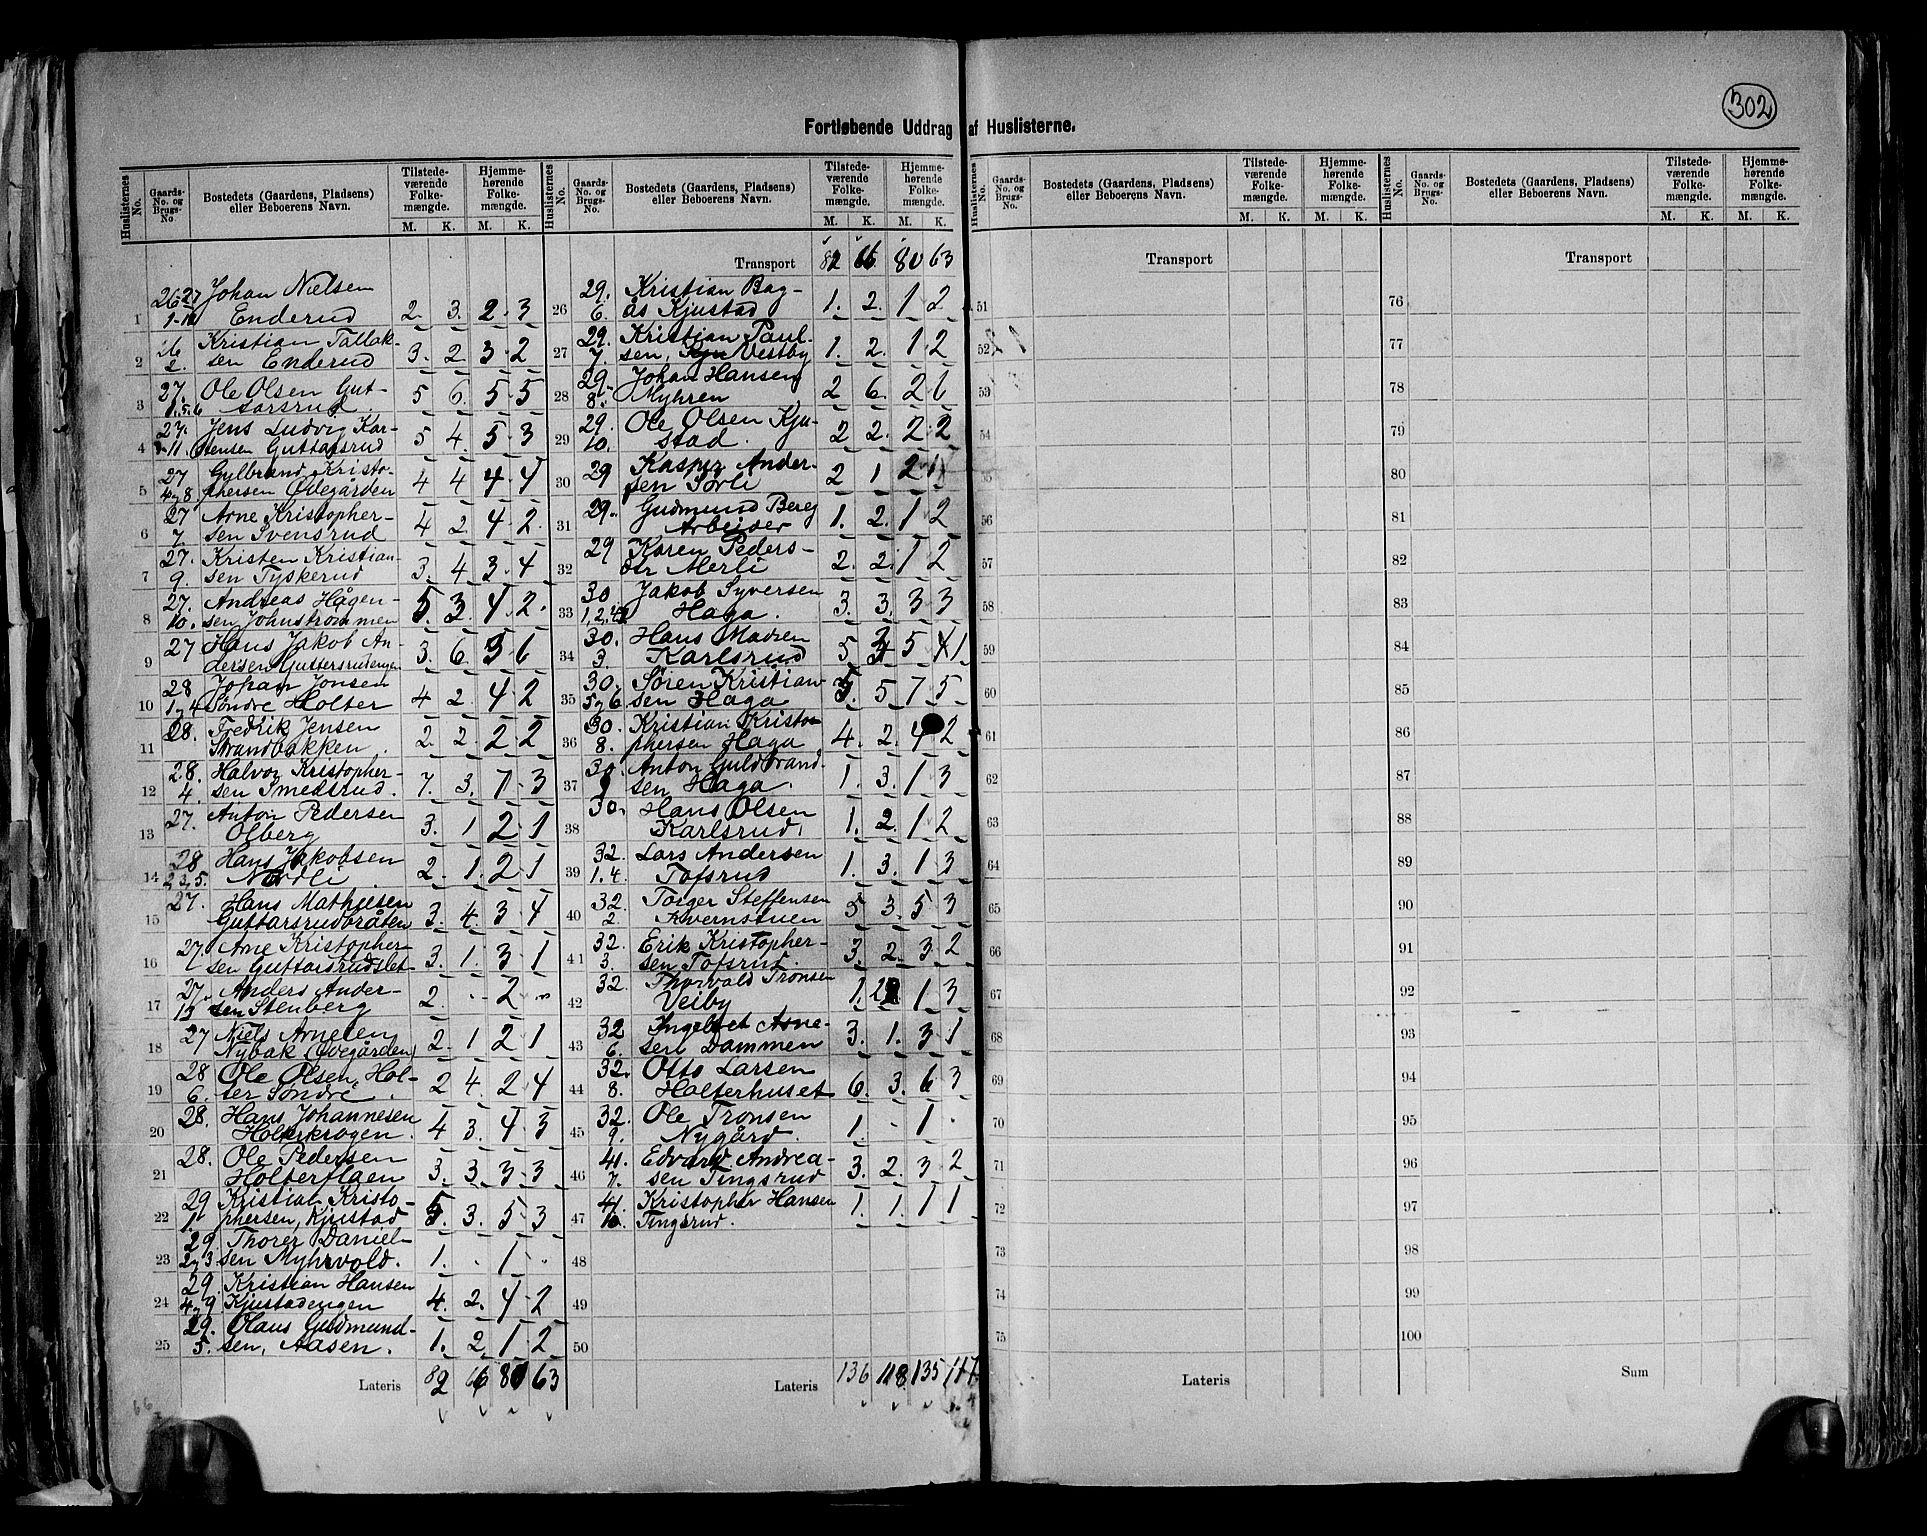 302
Fortløbende Uddrag af Huslisterne.
Huslisternes No.
Gaards-No. og Brugs-No.
Bostedets (Gaardens, Pladsens) eller Beboerens Navn.
Tilstedeværende Folkemængde. M. K.
Hjemmehørende Folkemængde. M. K.
1 26 27 Johan Nielsen
Enderud 2. 3. 2 3
2 2. Kristian Tallak-
sen Enderud 3. 2 3 2
3 27. Ole Olsen Gut-
1,5,6 tarsrud. 5 6. 5 5
4 27. Jens Ludvig Kar-
11. stensen Guttarsrud 5 4. 5 3
5 27 Gulbrand Kristo-
4 8. phersen Ødegården 4 4 4 4
6 27 Arne Kristopher-
7. sen Svensrud 4 2 4 2
7 27. Kristen Kristian-
9. sen Tyskerud 3. 4 3 4
8 27. Andreas Hågen-
10. sen Johnstrømmen 5. 3. 4 2
9 27 Hans Jakob An-
dersen Guttersrudengen 3. 6. 3 6
10 28 Johan Jonsen
1,4 Søndre Holter 4 2. 4 2
11 28. Fredrik Jensen
Strandbakken. 2. 2 2 2
12 28. Halvor Kristopher-
4. sen Smedsrud. 7. 3. 7 3
13 27. Anton Pedersen
Olberg 3. 1 2 1
14 28 Hans Jakobsen
2,3,5. Nordli 2. 1. 2 1
15 27. Hans Mathiesen
Guttarsrudbråten 3. 4. 3 4
16 27. Arne Kristopher-
sen Guttarsrudslet 3. 1. 3 1
17 27. Anders Ander-
13 sen Stenberg 2. 2
18 27 Niels Arnesen
Nybak (Ødegården) 2. 1 2 1
19 28 Ole Olsen, Hol-
6. ter Søndre. 2 4. 2 4
20 28. Hans Johannesen
Holterkrogen. 4 3. 4 3
21 28. Ole Pedersen
Holterflaen 3. 3. 3 3
22 29 Kristian Kristo-
1. phersen, Kjustad 5. 3. 5 3
23 29. Thorer Daniel-
2,3 sen Myhrvold. 1. 1
24 29. Kristian Hansen
4,9 Kjustadengen 4. 2. 4 2
25 29. Olaus Gudmund-
5. sen, Aasen. 1. 2 1 2
Lateris 82 66 80 63
Huslisternes No.
Gaards-No. og Brugs-No.
Bostedets (Gaardens, Pladsens) eller Beboerens Navn.
Tilstedeværende Folkemængde. M. K.
Hjemmehørende Folkemængde. M. K.
Transport 82 66 80 63
26 29. Kristian Bag-
6. ås Kjustad 1. 2. 1 2
27 29. Kristian Paul-
7. sen, Vestby 1. 2. 1 2
28 29. Johan Hansen
8. Myhren 2 6. 2 6
29 29. Ole Olsen Kju-
10. stad. 2 2. 2 2
30 29 Kasper Ander-
sen Sørli 2 1 2 1
31 29. Gudmund Berg
Arbeider 1. 2. 1 2
32 29 Karen Peders-
dtr Merli 2. 2. 1 2
33 30 Jakob Syversen
1,2,4 Haga. 3. 3. 3 3
34 30. Hans Madsen
3. Karlsrud 5 5 4
35 30. Søren Kristian-
5,6 sen Haga 5. 5 7 5
36 30. Kristian Kristo-
8. phersen Haga 4. 2. 4 2
37 30. Anton Guldbrand-
sen Haga. 1. 3. 1 3
38 30. Hans Olsen
Karlsrud. 1. 2. 1 2
39 32. Lars Andersen
1. 4. Tofsrud 1. 3. 1 3
40 32. Torger Steffensen
2. Kvernstuen 5 3. 5 3
41 32. Erik Kristopher-
3. sen Tofsrud. 3. 2. 3 2
42 32. Thorvald Tronsen
Veiby 1. 1 3
43 32 Ingebret Arne-
6. sen Dammen 3. 1. 3 1
44 32. Otto Larsen
8. Holterhuset 6. 3. 6 3
45 32. Ole Tronsen
9. Nygård. 1. 1
46 41. Edvard Andrea-
7. sen Tingsrud 3. 2. 3 2
47 41. Kristopher Hansen
10. Tingsrud. 1. 1. 1 1
48
49
50
Lateris 136 118. 135 117
Huslisternes No.
Gaards-No. og Brugs-No.
Bostedets (Gaardens, Pladsens) eller Beboerens Navn.
Tilstedeværende Folkemængde. M. K.
Hjemmehørende Folkemængde. M. K.
Transport
51
52
53
54
55
56
57
58
59
60
61
62
63
64
65
66
67
68
69
70
71
72
73
74
75
Lateris
Huslisternes No.
Gaards-No. og Brugs-No.
Bostedets (Gaardens, Pladsens) eller Beboerens Navn.
Tilstedeværende Folkemængde. M. K.
Hjemmehørende Folkemængde. M. K.
Transport
76
77
78
79
80
81
82
83
84
85
86
87
88
89
90
91
92
93
94
95
96
97
98
99
100
Sum